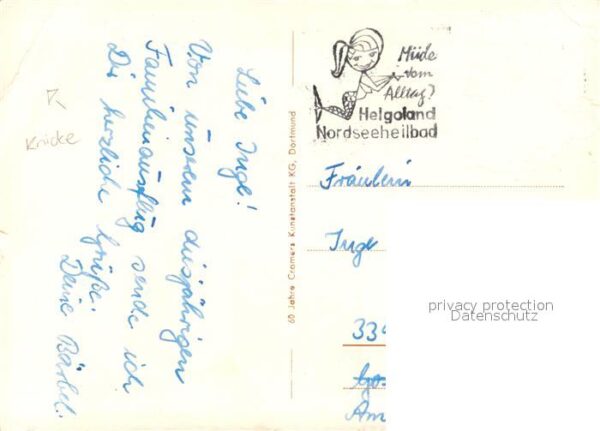 Liebe Inge!
Von unserem diesjährigen
Familienausflug sende ich
Dir herzliche Grüße.
Deine Bärbel.
Knicke
60 Jahre Cramers Kunstanstalt KG, Dortmund
Müde
vom
Alltag?
Helgoland
Nordseeheilbad
Fräulein
Inge
privacy protection
Datenschutz
334
Am